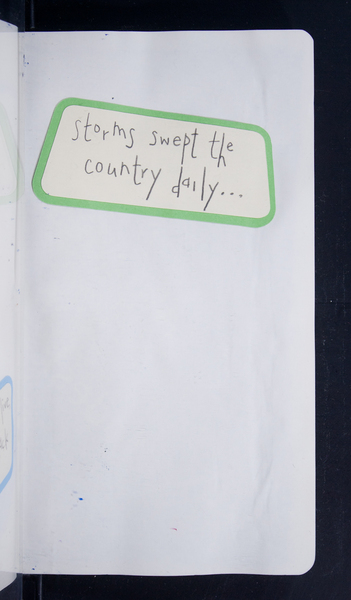 storms swept the
country daily...